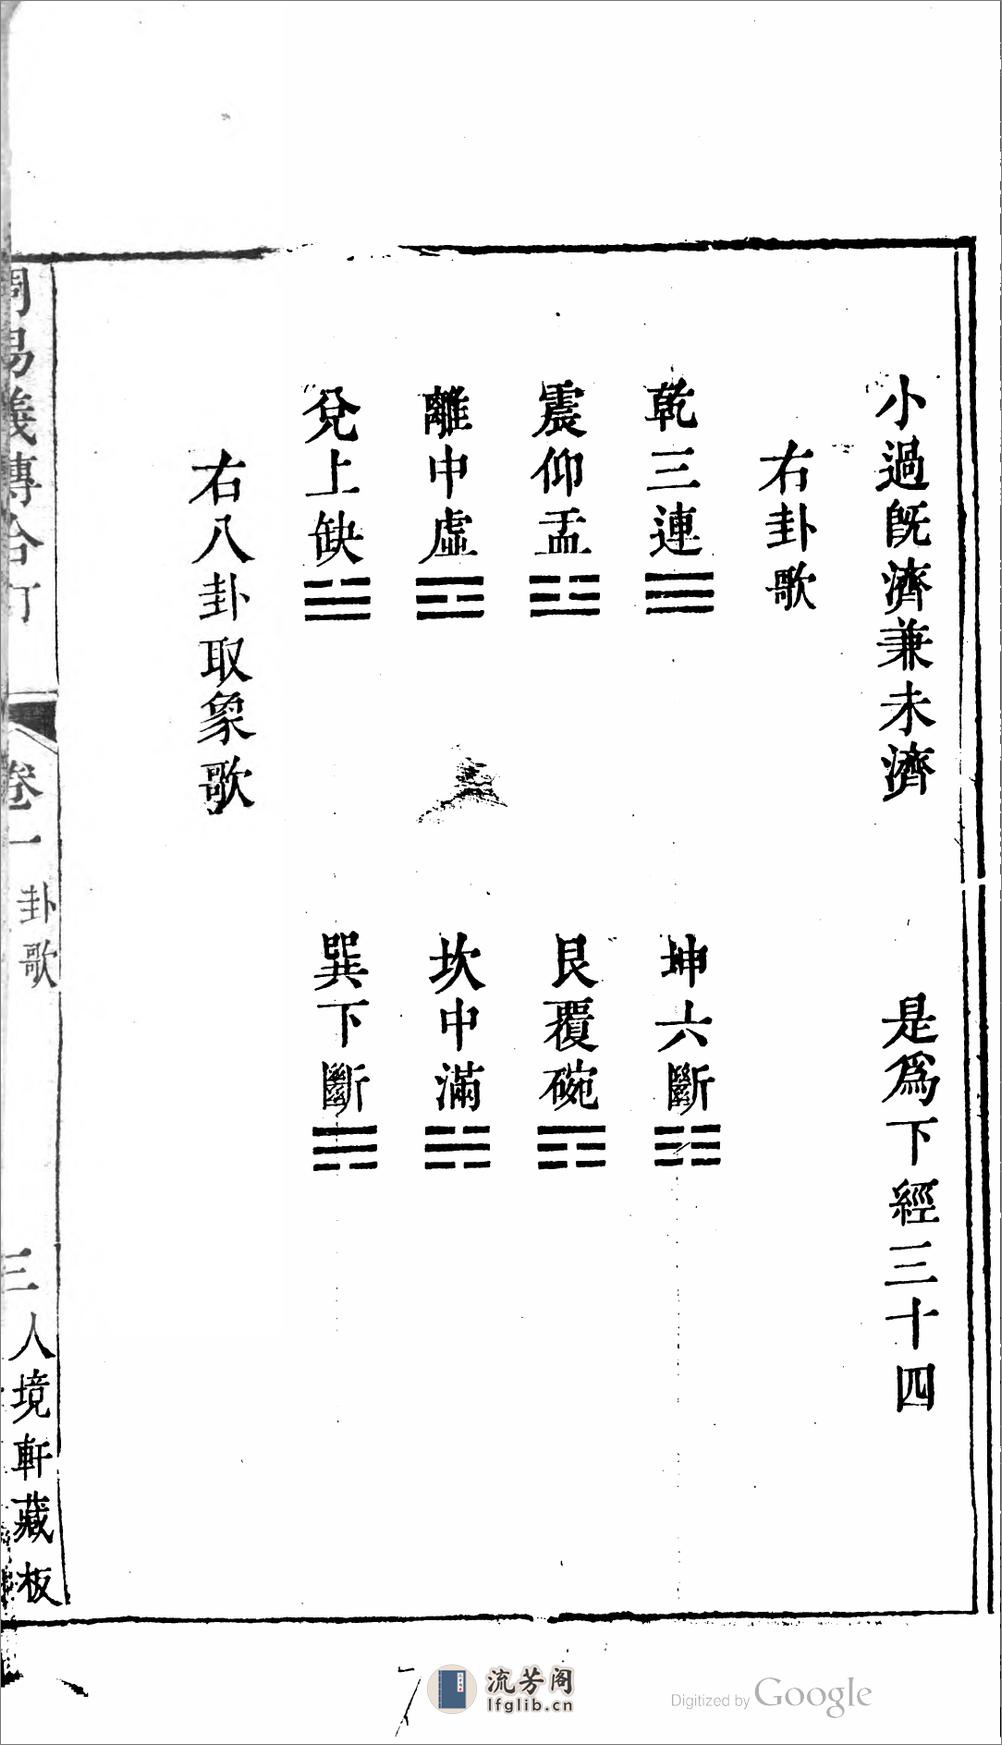 小過旣濟兼未濟　是爲下經三十四
右卦歌
乾三連☰　坤六斷☷
震仰盂☳　艮覆碗☶
離中虛☲　坎中滿☵
兌上缺☱　巽下斷☴
右八卦取象歌
周易義傳合訂　卷一　卦歌　三　人境軒藏板
流芳阁
lfglib.cn
Digitized by Google